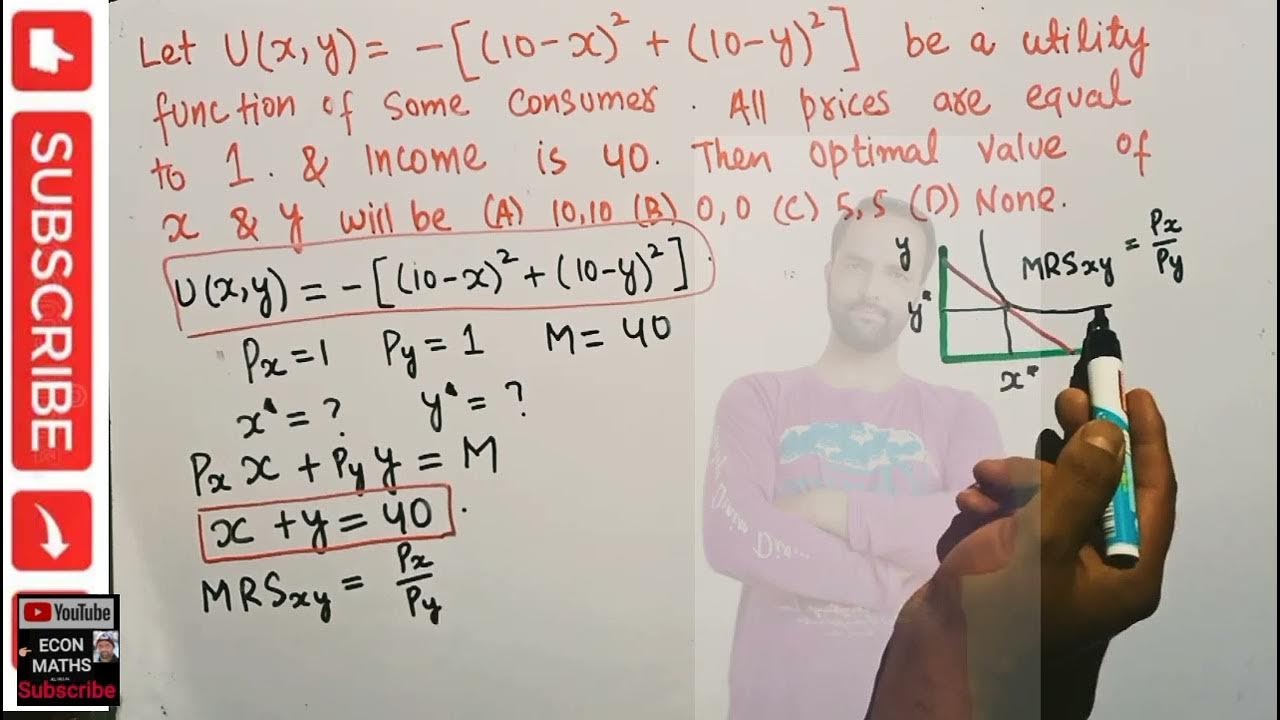 Let U(x,y) = -[(10-x)² + (10-y)²] be a utility
function of some consumer. All prices are equal
to 1. & Income is 40. Then optimal value of
x & y will be (A) 10,10 (B) 0,0 (C) 5,5 (D) None.
U(x,y) = -[(10-x)² + (10-y)²].
Px = 1 Py = 1 M = 40
x* = ? y* = ?
Px x + Py y = M
x + y = 40.
MRSxy = Px/Py
y
MRSxy = Px/Py
y*
x*
SUBSCRIBE
YouTube
ECON
MATHS
Subscribe